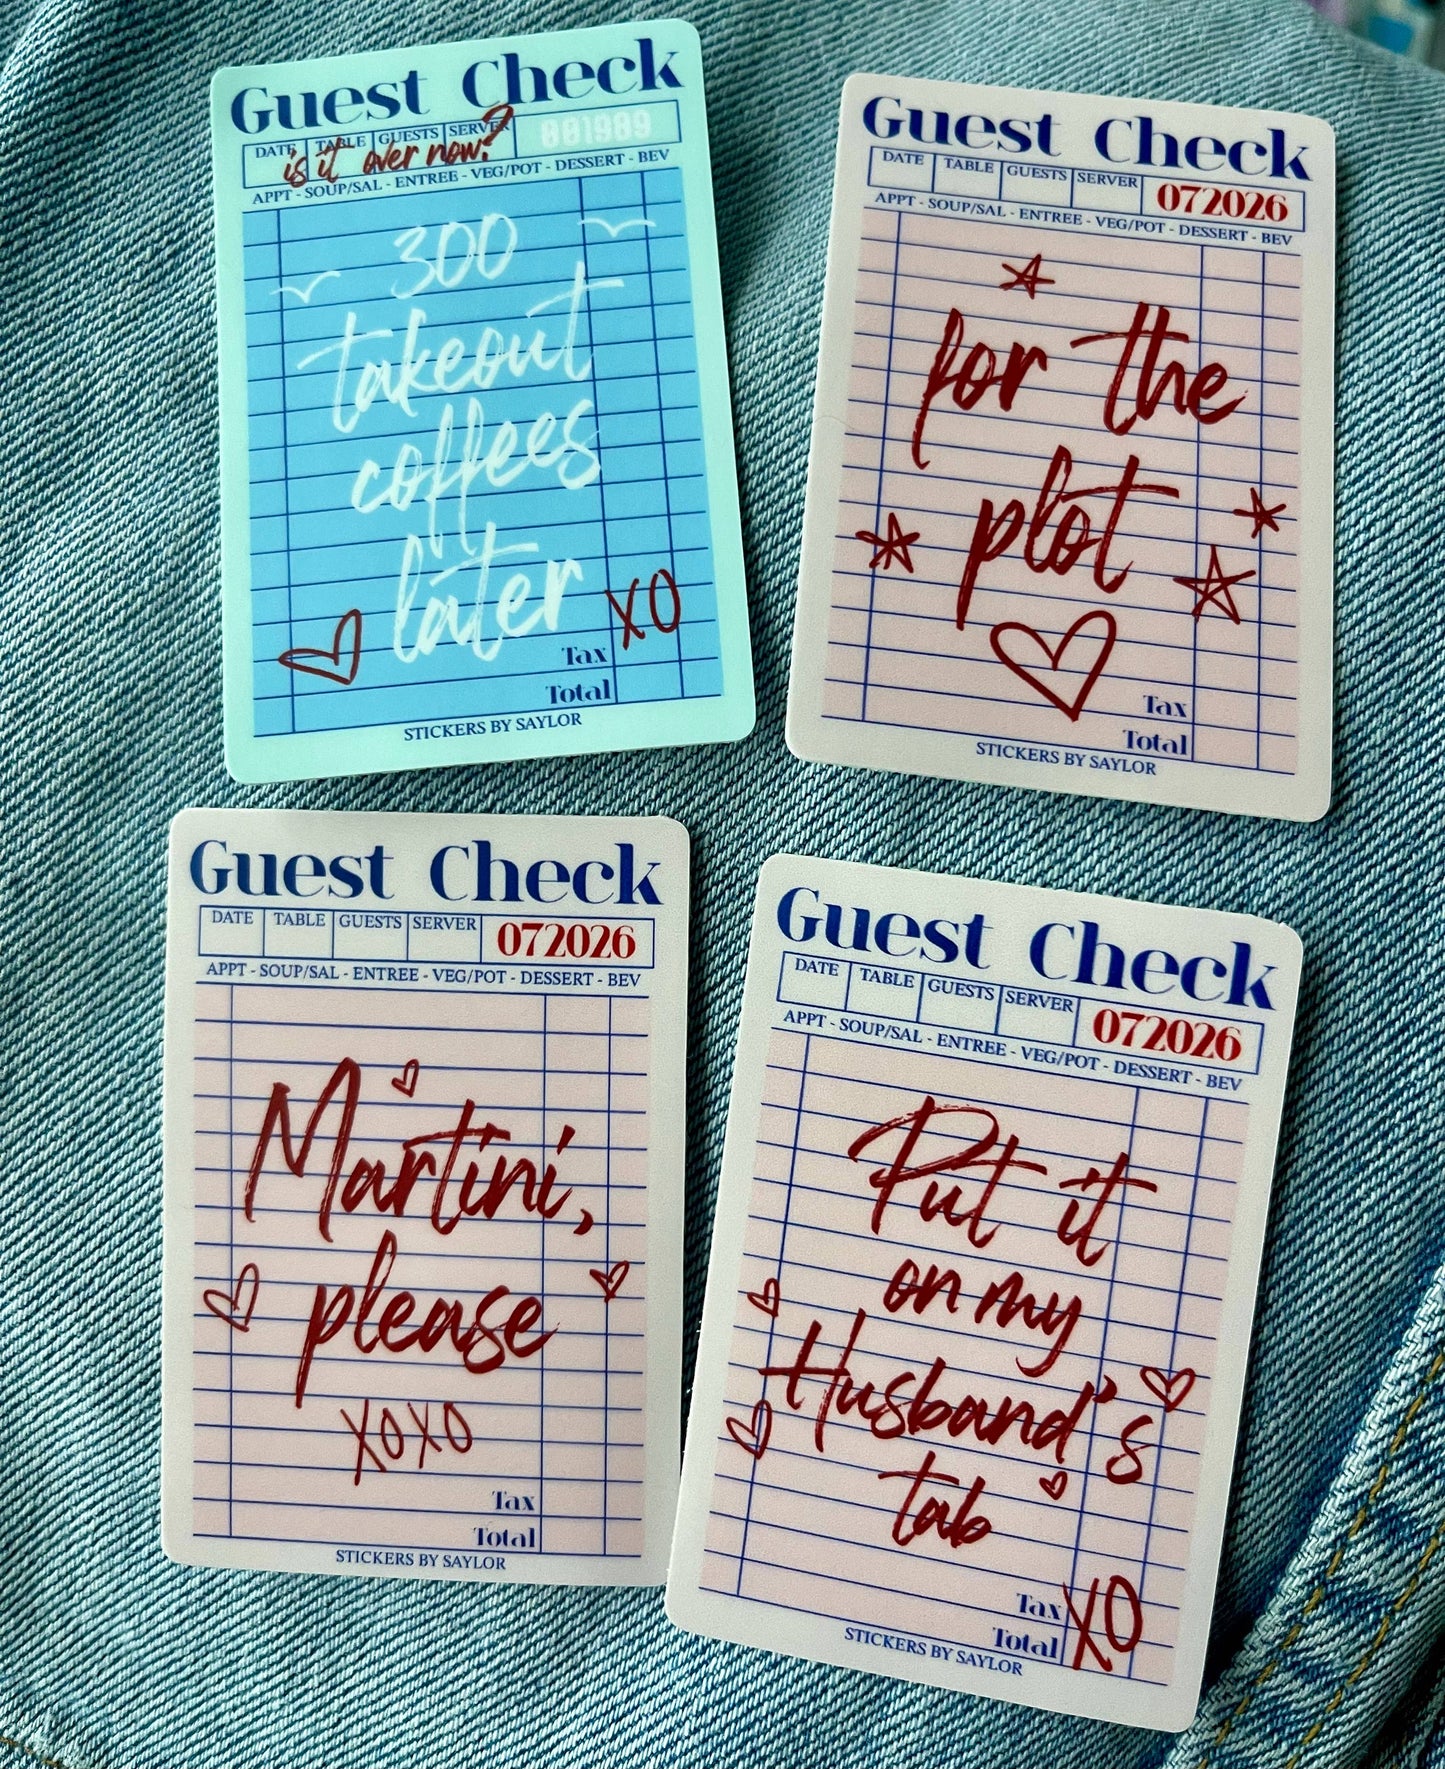 Guest Check
DATE TABLE GUESTS SERVER 001989
is it over now?
APPT - SOUP/SAL - ENTREE - VEG/POT - DESSERT - BEV
300
takeout
coffees
later
XO
Tax
Total
STICKERS BY SAYLOR
Guest Check
DATE TABLE GUESTS SERVER 072026
APPT - SOUP/SAL - ENTREE - VEG/POT - DESSERT - BEV
for the
plot
Tax
Total
STICKERS BY SAYLOR
Guest Check
DATE TABLE GUESTS SERVER 072026
APPT - SOUP/SAL - ENTREE - VEG/POT - DESSERT - BEV
Martini,
please
XOXO
Tax
Total
STICKERS BY SAYLOR
Guest Check
DATE TABLE GUESTS SERVER 072026
APPT - SOUP/SAL - ENTREE - VEG/POT - DESSERT - BEV
Put it
on my
Husband's
tab
Tax
XO
Total
STICKERS BY SAYLOR